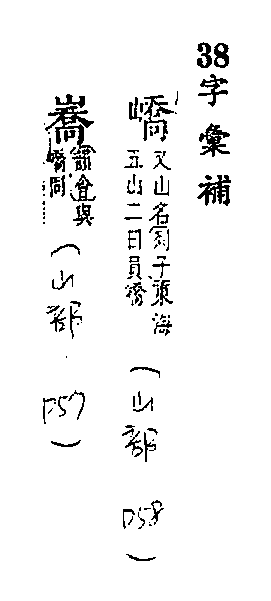 38字彙補
嶠又山名列子東海
五山二曰員嶠
(山部 P58)
嵩
與
嶠同
(山部 P57)